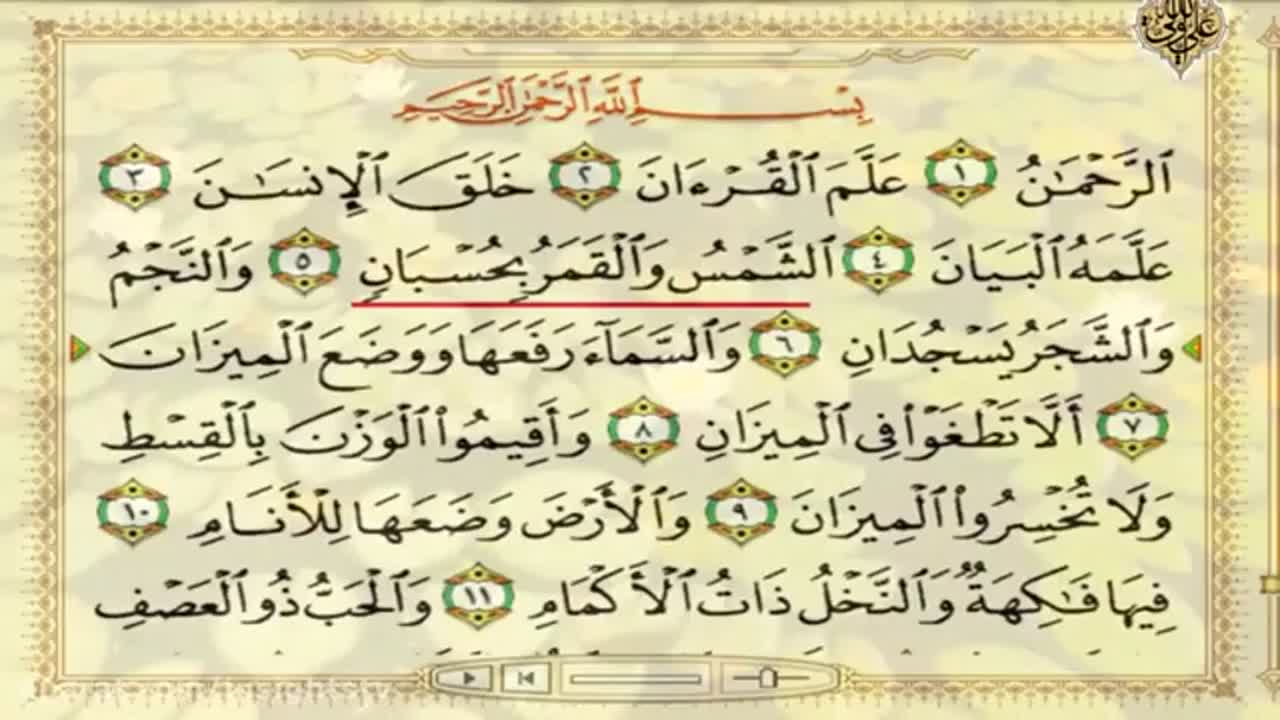 بِسْمِ ٱللَّهِ ٱلرَّحْمَٰنِ ٱلرَّحِيمِ
ٱلرَّحْمَٰنُ ١ عَلَّمَ ٱلْقُرْءَانَ ٢ خَلَقَ ٱلْإِنسَٰنَ ٣
عَلَّمَهُ ٱلْبَيَانَ ٤ ٱلشَّمْسُ وَٱلْقَمَرُ بِحُسْبَانٍ ٥ وَٱلنَّجْمُ
وَٱلشَّجَرُ يَسْجُدَانِ ٦ وَٱلسَّمَآءَ رَفَعَهَا وَوَضَعَ ٱلْمِيزَانَ
٧ أَلَّا تَطْغَوْا۟ فِى ٱلْمِيزَانِ ٨ وَأَقِيمُوا۟ ٱلْوَزْنَ بِٱلْقِسْطِ
وَلَا تُخْسِرُوا۟ ٱلْمِيزَانَ ٩ وَٱلْأَرْضَ وَضَعَهَا لِلْأَنَامِ ١٠
فِيهَا فَٰكِهَةٌ وَٱلنَّخْلُ ذَاتُ ٱلْأَكْمَامِ ١١ وَٱلْحَبُّ ذُو ٱلْعَصْفِ